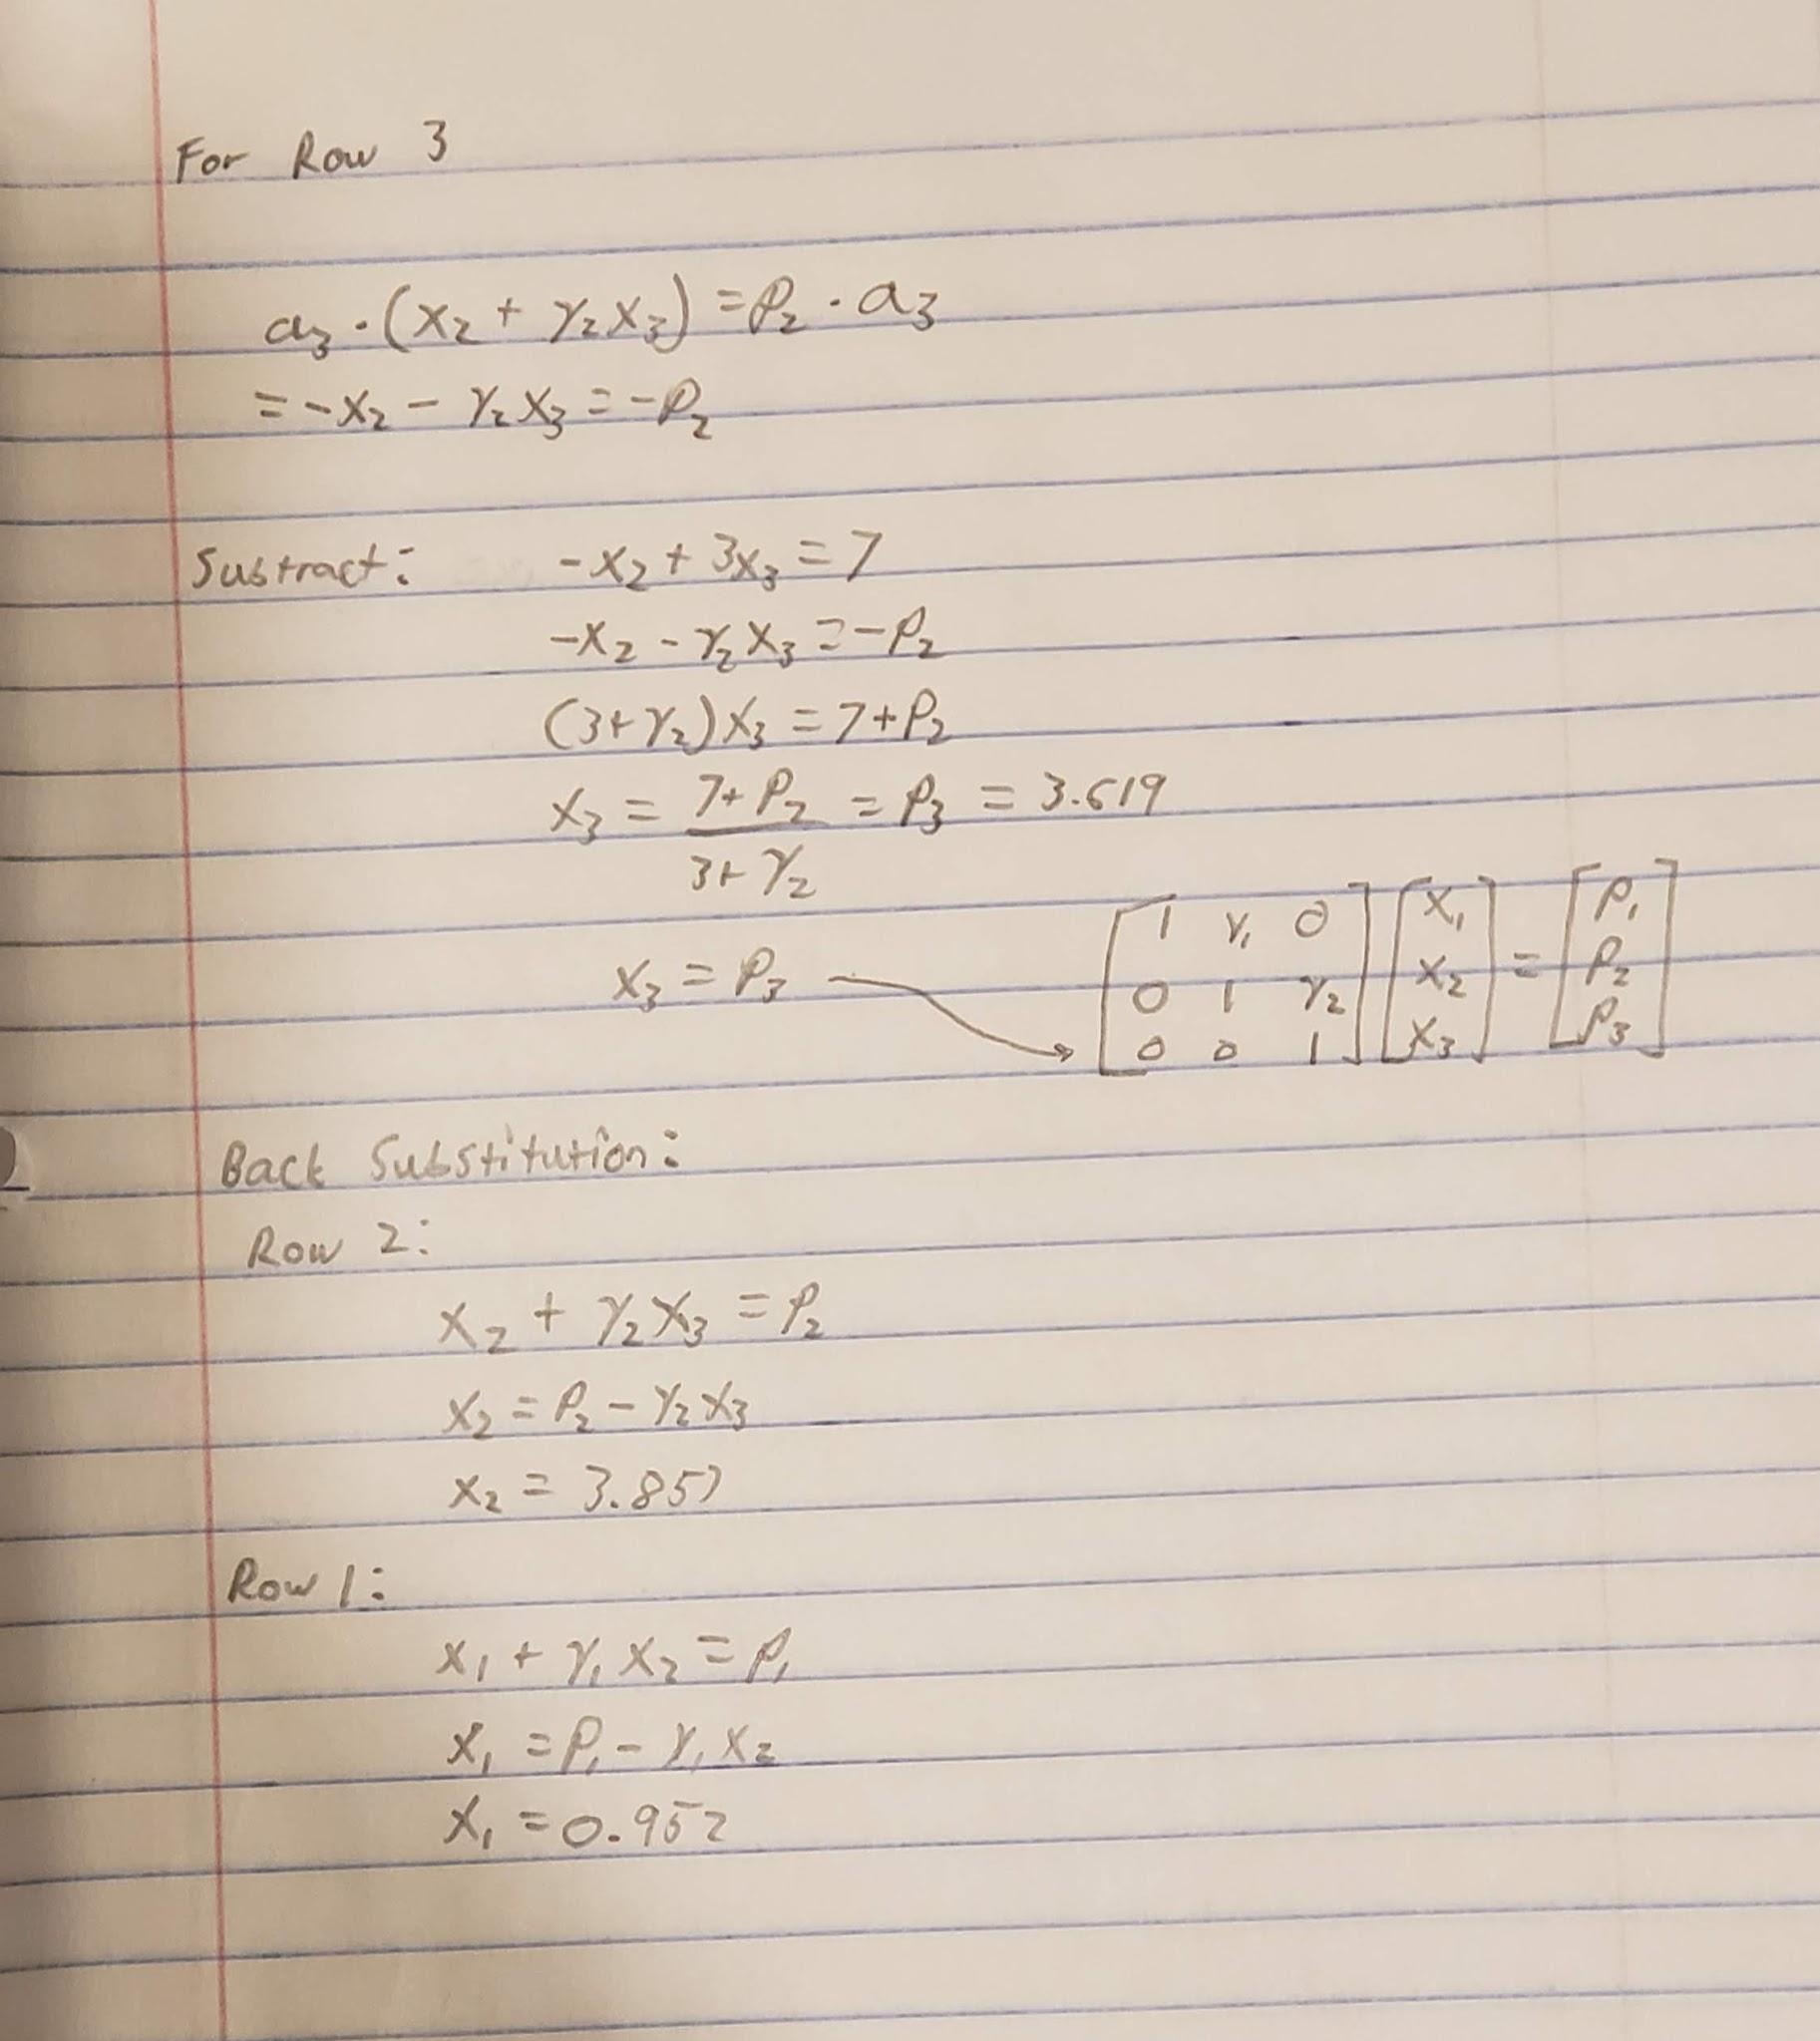 For Row 3
a₃·(x₂ + γ₂x₃) = ρ₂·a₃
= -x₂ - γ₂x₃ = -ρ₂
Subtract: -x₂ + 3x₃ = 7
-x₂ - γ₂x₃ = -ρ₂
(3+γ₂)x₃ = 7+ρ₂
x₃ = (7+ρ₂)/(3+γ₂) = ρ₃ = 3.619
x₃ = ρ₃ → [1 γ₁ 0; 0 1 γ₂; 0 0 1] [x₁; x₂; x₃] = [ρ₁; ρ₂; ρ₃]
Back Substitution:
Row 2:
x₂ + γ₂x₃ = ρ₂
x₂ = ρ₂ - γ₂x₃
x₂ = 3.857
Row 1:
x₁ + γ₁x₂ = ρ₁
x₁ = ρ₁ - γ₁x₂
x₁ = 0.952